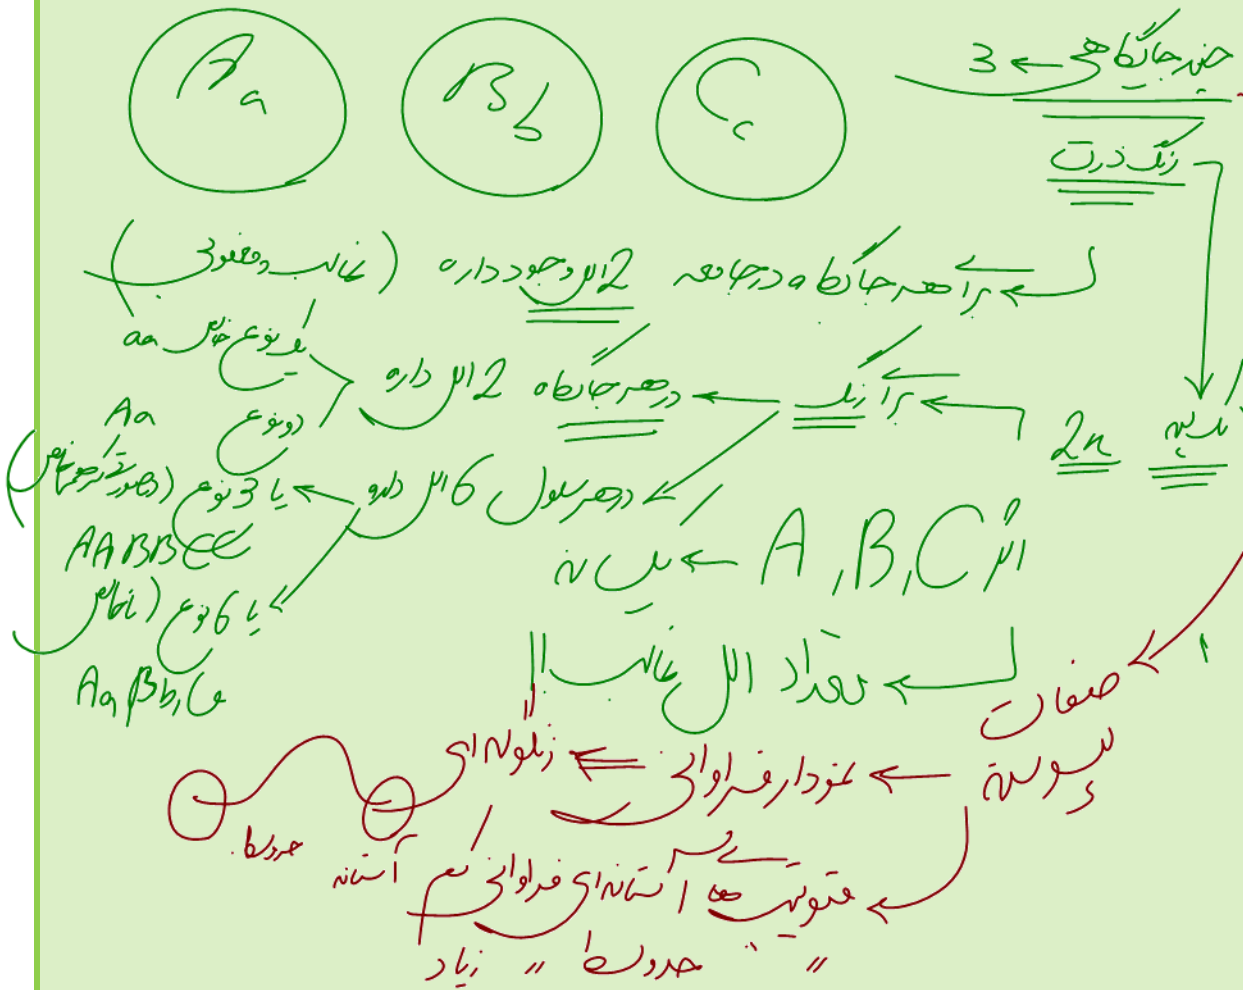 Aa Bb Cc چند جایگاهی ← 3
رنگ ذرت
برا هر جایگاه در جامعه 2 الل وجود داره (غالب و مغلوب)
برا رنگ ← در هر جایگاه 2 الل داره
یک نوع خالص aa
دو نوع Aa
2n
در هر سلول 6 الل داره
یا 3 نوع (در صورت
AABBCC
یا 6 نوع (ناخالص)
AaBb,Cc
الل A, B, C ←
تعداد الل غالب !!
صفات پیوسته ← نمودار فراوانی ← زنگوله‌ای
حدوسط آستانه
فنوتیپ ها آستانه‌ای فراوانی کم
" " حدوسط " زیاد